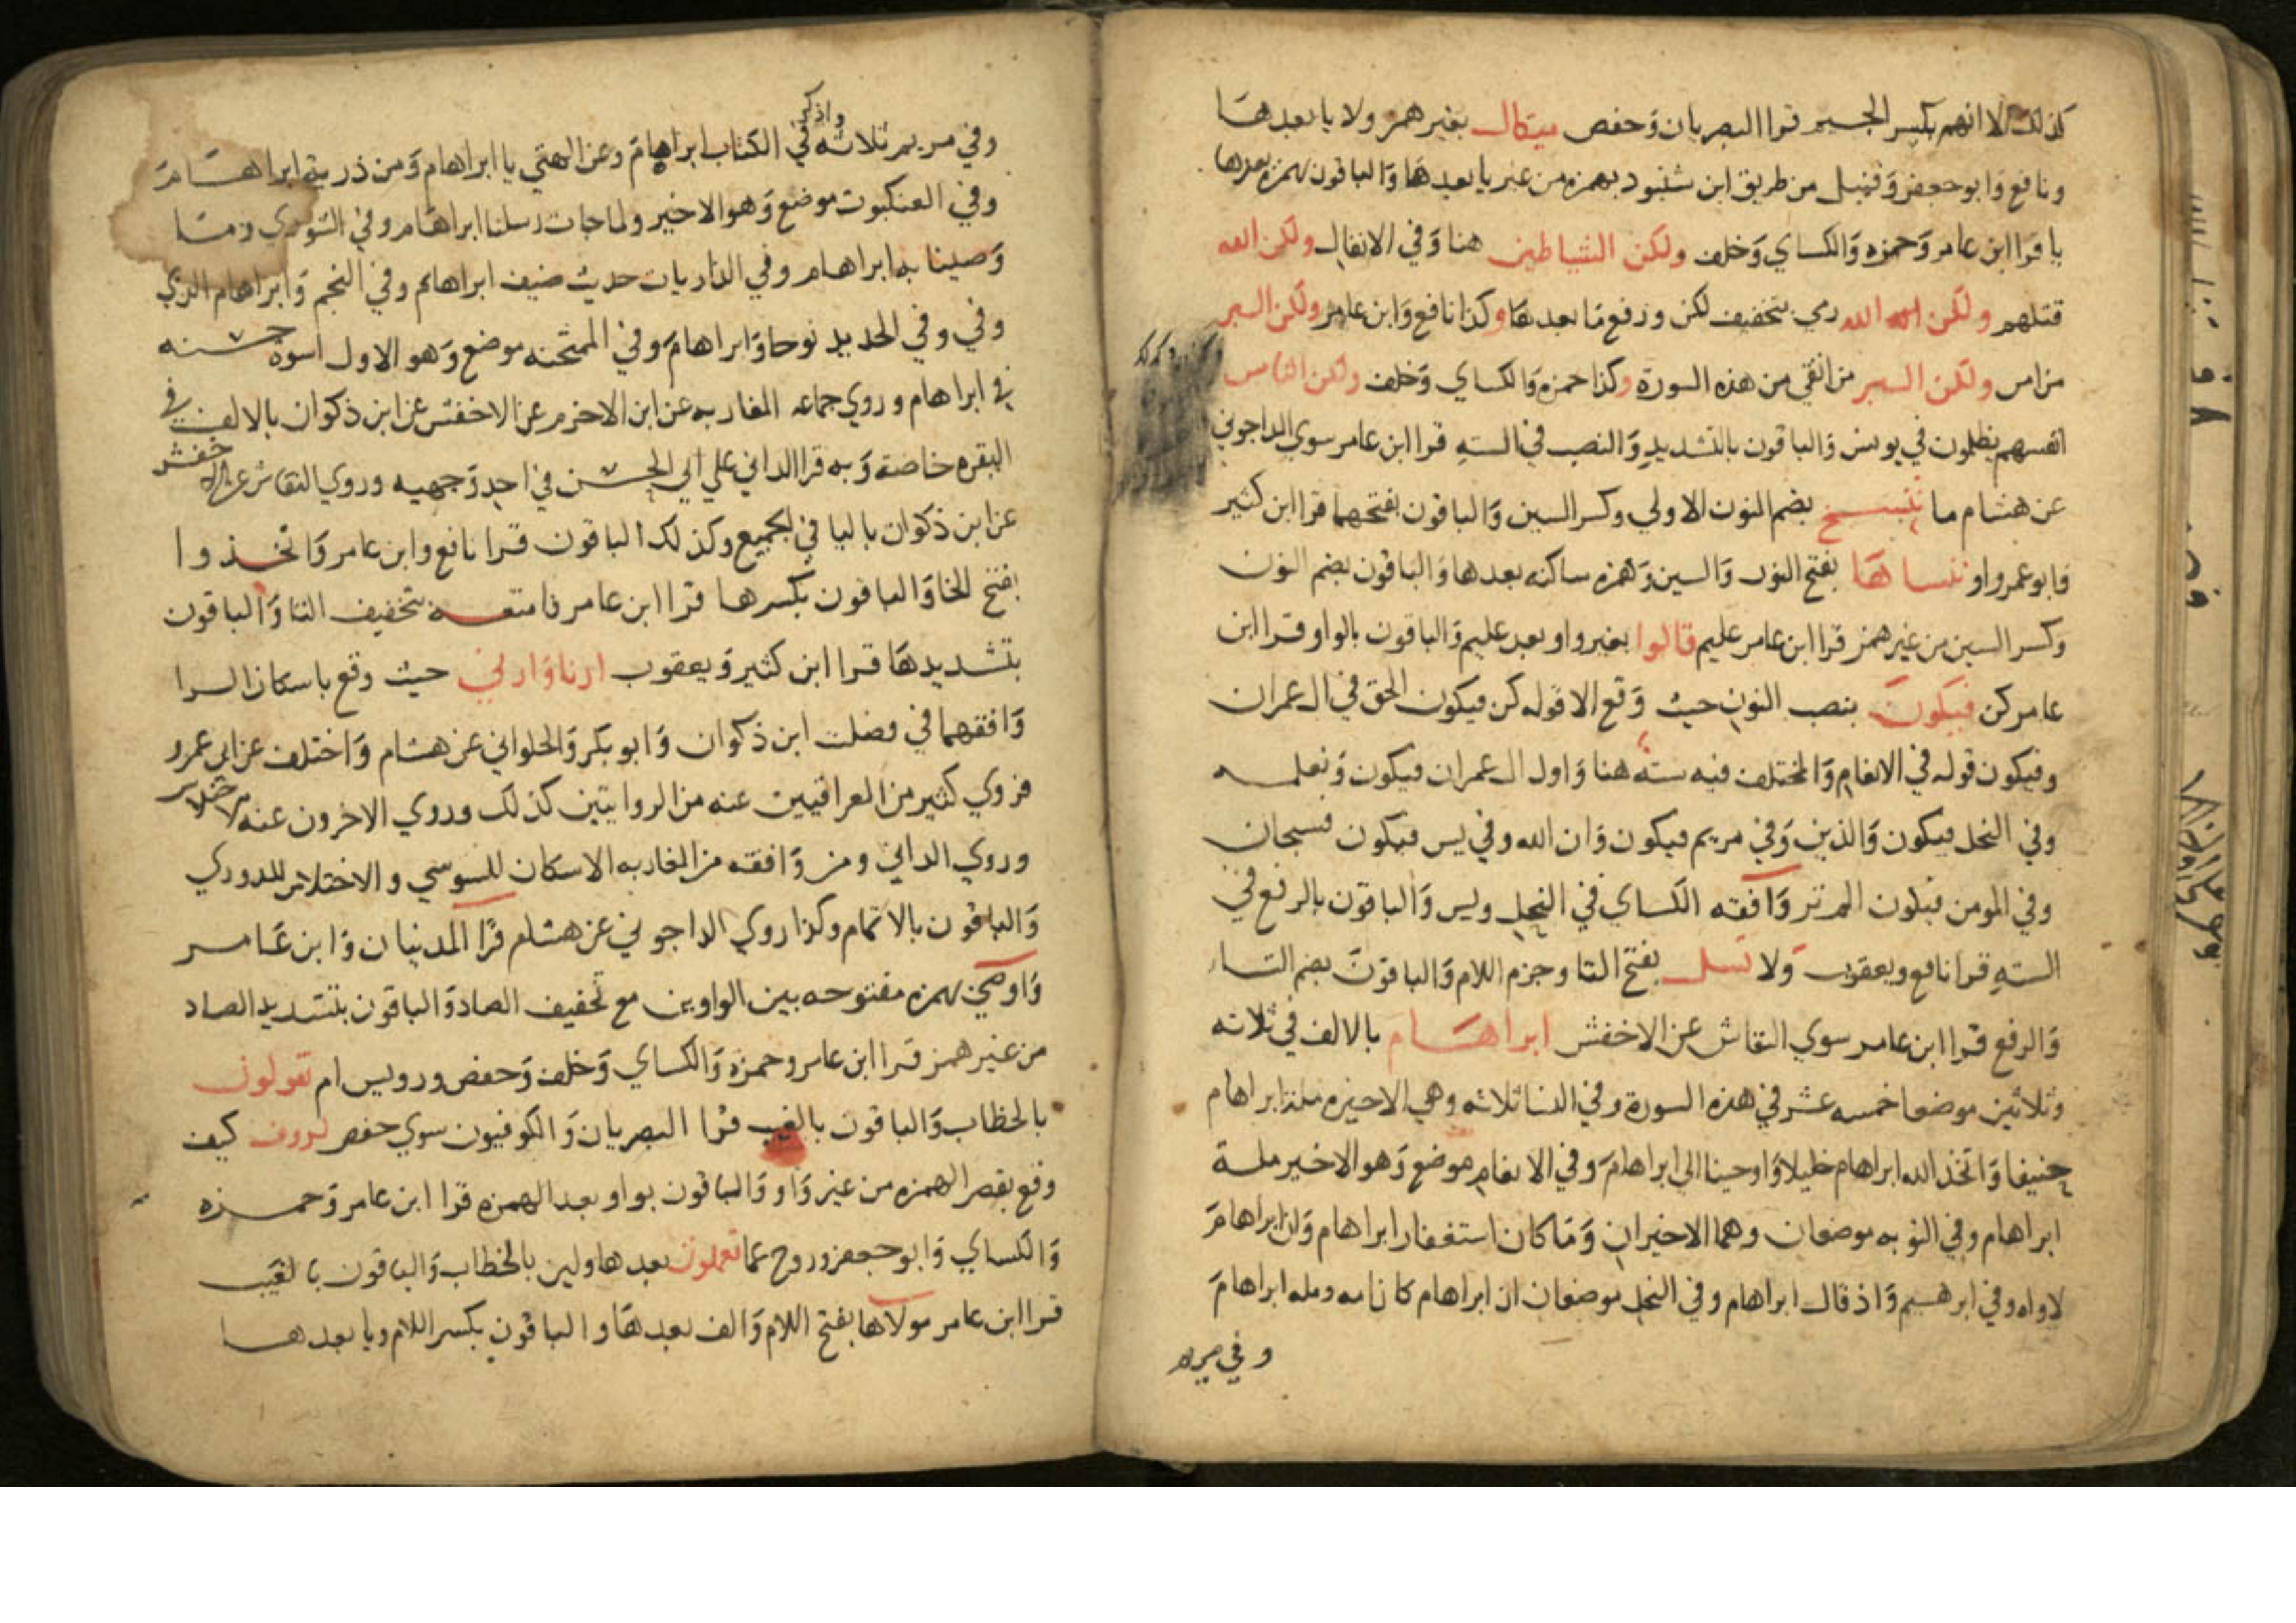 كذلك الا انهم بكسر الجيم قرا البصريان وَحفص ميكال بغير همز ولا يا بعدها
ونافع وَابو جعفر وَقنبل من طريق ابن شنبود بهمزه من غير يا بعدهَا وَالباقون بهمزه بعدها
يا قرا ابن عامر وَحمزه وَالكساي وَخلف ولكن الشياطين هنا وَفي الانفال ولكن الله
قتلهم ولكن الله الله رمي بتخفيف لكن ورفع مَا بعدهَا وكذا نافع وَابن عامر ولكن البر
من امن ولكن البر من اتقي من هذه السورة وكذا حمزه وَالكساي وَخلف ولكن الناس
انفسهم يظلمون في يونس وَالباقون بالتشديد وَالنصب في السته قرا ابن عامر سوي الداجوني
عن هشام ما ننسخ بضم النون الاولي وكسر السين وَالباقون بفتحهما قرا ابن كثير
وَابو عمرو او ننساهَا بفتح النون وَالسين وَهمزه ساكنه بعدها وَالباقون بضم النون
وكسر السين من غير همز قرا ابن عامر عليم قالوا بغير واو بعد عليم وَالباقون بالواو قرا ابن
عامر كن فيكونَ بنصب النون حيث وَقع الا قوله كن فيكون الحق في ال عمران
وفيكون قوله في الانعام وَالمختلف فيه ستة هنا وَاول ال عمران فيكون وَنعلمه
وفي النحل فيكون وَالذين وَفي مريم فيكون وَان الله وفي يس فيكون فسبحان
وفي المومن فيكون الم تر وَافقه الكساي في النحل ويس وَالباقون بالرفع في
السته قرا نافع ويعقوب وَلا تسل بفتح التا وجزم اللام وَالباقونَ بضم التا
وَالرفع قرا ابن عامر سوي النقاش عن الاخفش ابراهَام بالالف في ثلاثه
وثلاثين موضعا خمسه عشر في هذه السورة وفي النسا ثلاثه وهي الاخيره ملة ابراهام
حنيفا وَاتخذ الله ابراهام خليلا وَاوحينا الي ابراهامَ وفي الانعام موضع وَهو الاخير ملة
ابراهام وفي التوبه موضعان وهما الاخيران وَمَا كان استغفار ابراهام وَان ابراهامَ
لاواه وفي ابرهيم وَاذ قال ابراهام وفي النحل موضعان ان ابراهام كان امه ومله ابراهامَ
وفي مريم
واذكر
وفي مريم ثلاثه في الكتاب ابراهامَ وعن الهتي يا ابراهام وَمن ذرية ابراهَامَ
وفي العنكبوت موضع وَهو الاخير ولما جات رسلنا ابراهَام وفي الشوري وَمَا
وَصينا به ابراهام وفي الذاريات حديث ضيف ابراهام وفي النجم وَابراهام الذي
وفي وفي الحديد نوحا وَابراهامَ وفي الممتحنه موضع وَهو الاول اسوة حسنه
في ابراهام وروي جماعه المغاربه عن ابن الاخرم عن الاخفش عن ابن ذكوان بالالف في
البقره خاصة وَبه قرا الداني علي ابي الحسن في احد وَجهيه وروي النقاش عن الاخفش
عن ابن ذكوان باليا في الجميع وكذلك الباقون قرا نافع وابن عامر وَاتخذوا
بفتح الخا وَالباقون بكسرها قرا ابن عامر فامتعه بتخفيف التا وَالباقون
بتشديدهَا قرا ابن كثير وَيعقوب ارنا وَارني حيث وقع باسكان الرا
وَافقهما في فصلت ابن ذكوان وَابو بكر وَالحلواني عن هشام وَاختلف عن ابي عمرو
فروي كثير من العراقيين عنه من الروايتين كذلك وروي الاخرون عنه الاختلاس
وروي الداني ومن وَافقه من المغاربه الاسكان للسوسي والاختلاس للدوري
وَالباقون بالاتمام وكذا روي الداجوني عن هشام قرا المدنيان وَابن عَامر
وَاوصي بهمزه مفتوحه بين الواوين مع تخفيف الصاد وَالباقون بتشديد الصاد
من غير همز قرا ابن عامر وحمزة وَالكساي وَخلف وَحفص ورويس ام تقولون
بالخطاب وَالباقون بالغيب قرا البصريان وَالكوفيون سوي حفص لروف كيف
وقع بقصر الهمزه من غير وَاو وَالباقون بواو بعد الهمزه قرا ابن عامر وَحمزه
وَالكساي وَابو جعفر وروح عما تعملون بعدها ولين بالخطاب وَالباقون بالغيب
قرا ابن عامر مولاها بفتح اللام وَالف بعدهَا والباقون بكسر اللام ويا بعدها